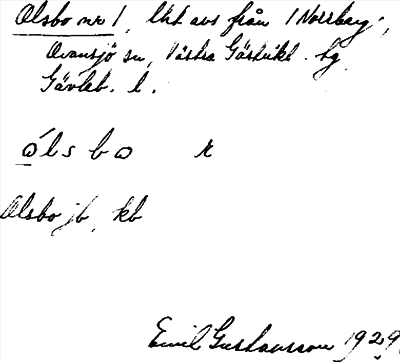 Olsbo nr 1, lht avs från 1 Norrberg,
Ovansjö sn, Västra Gästrikl. hg
Gävleb. l.
ólsbo r
Olsbo jb, kb
Emil Gustavsson 1929.